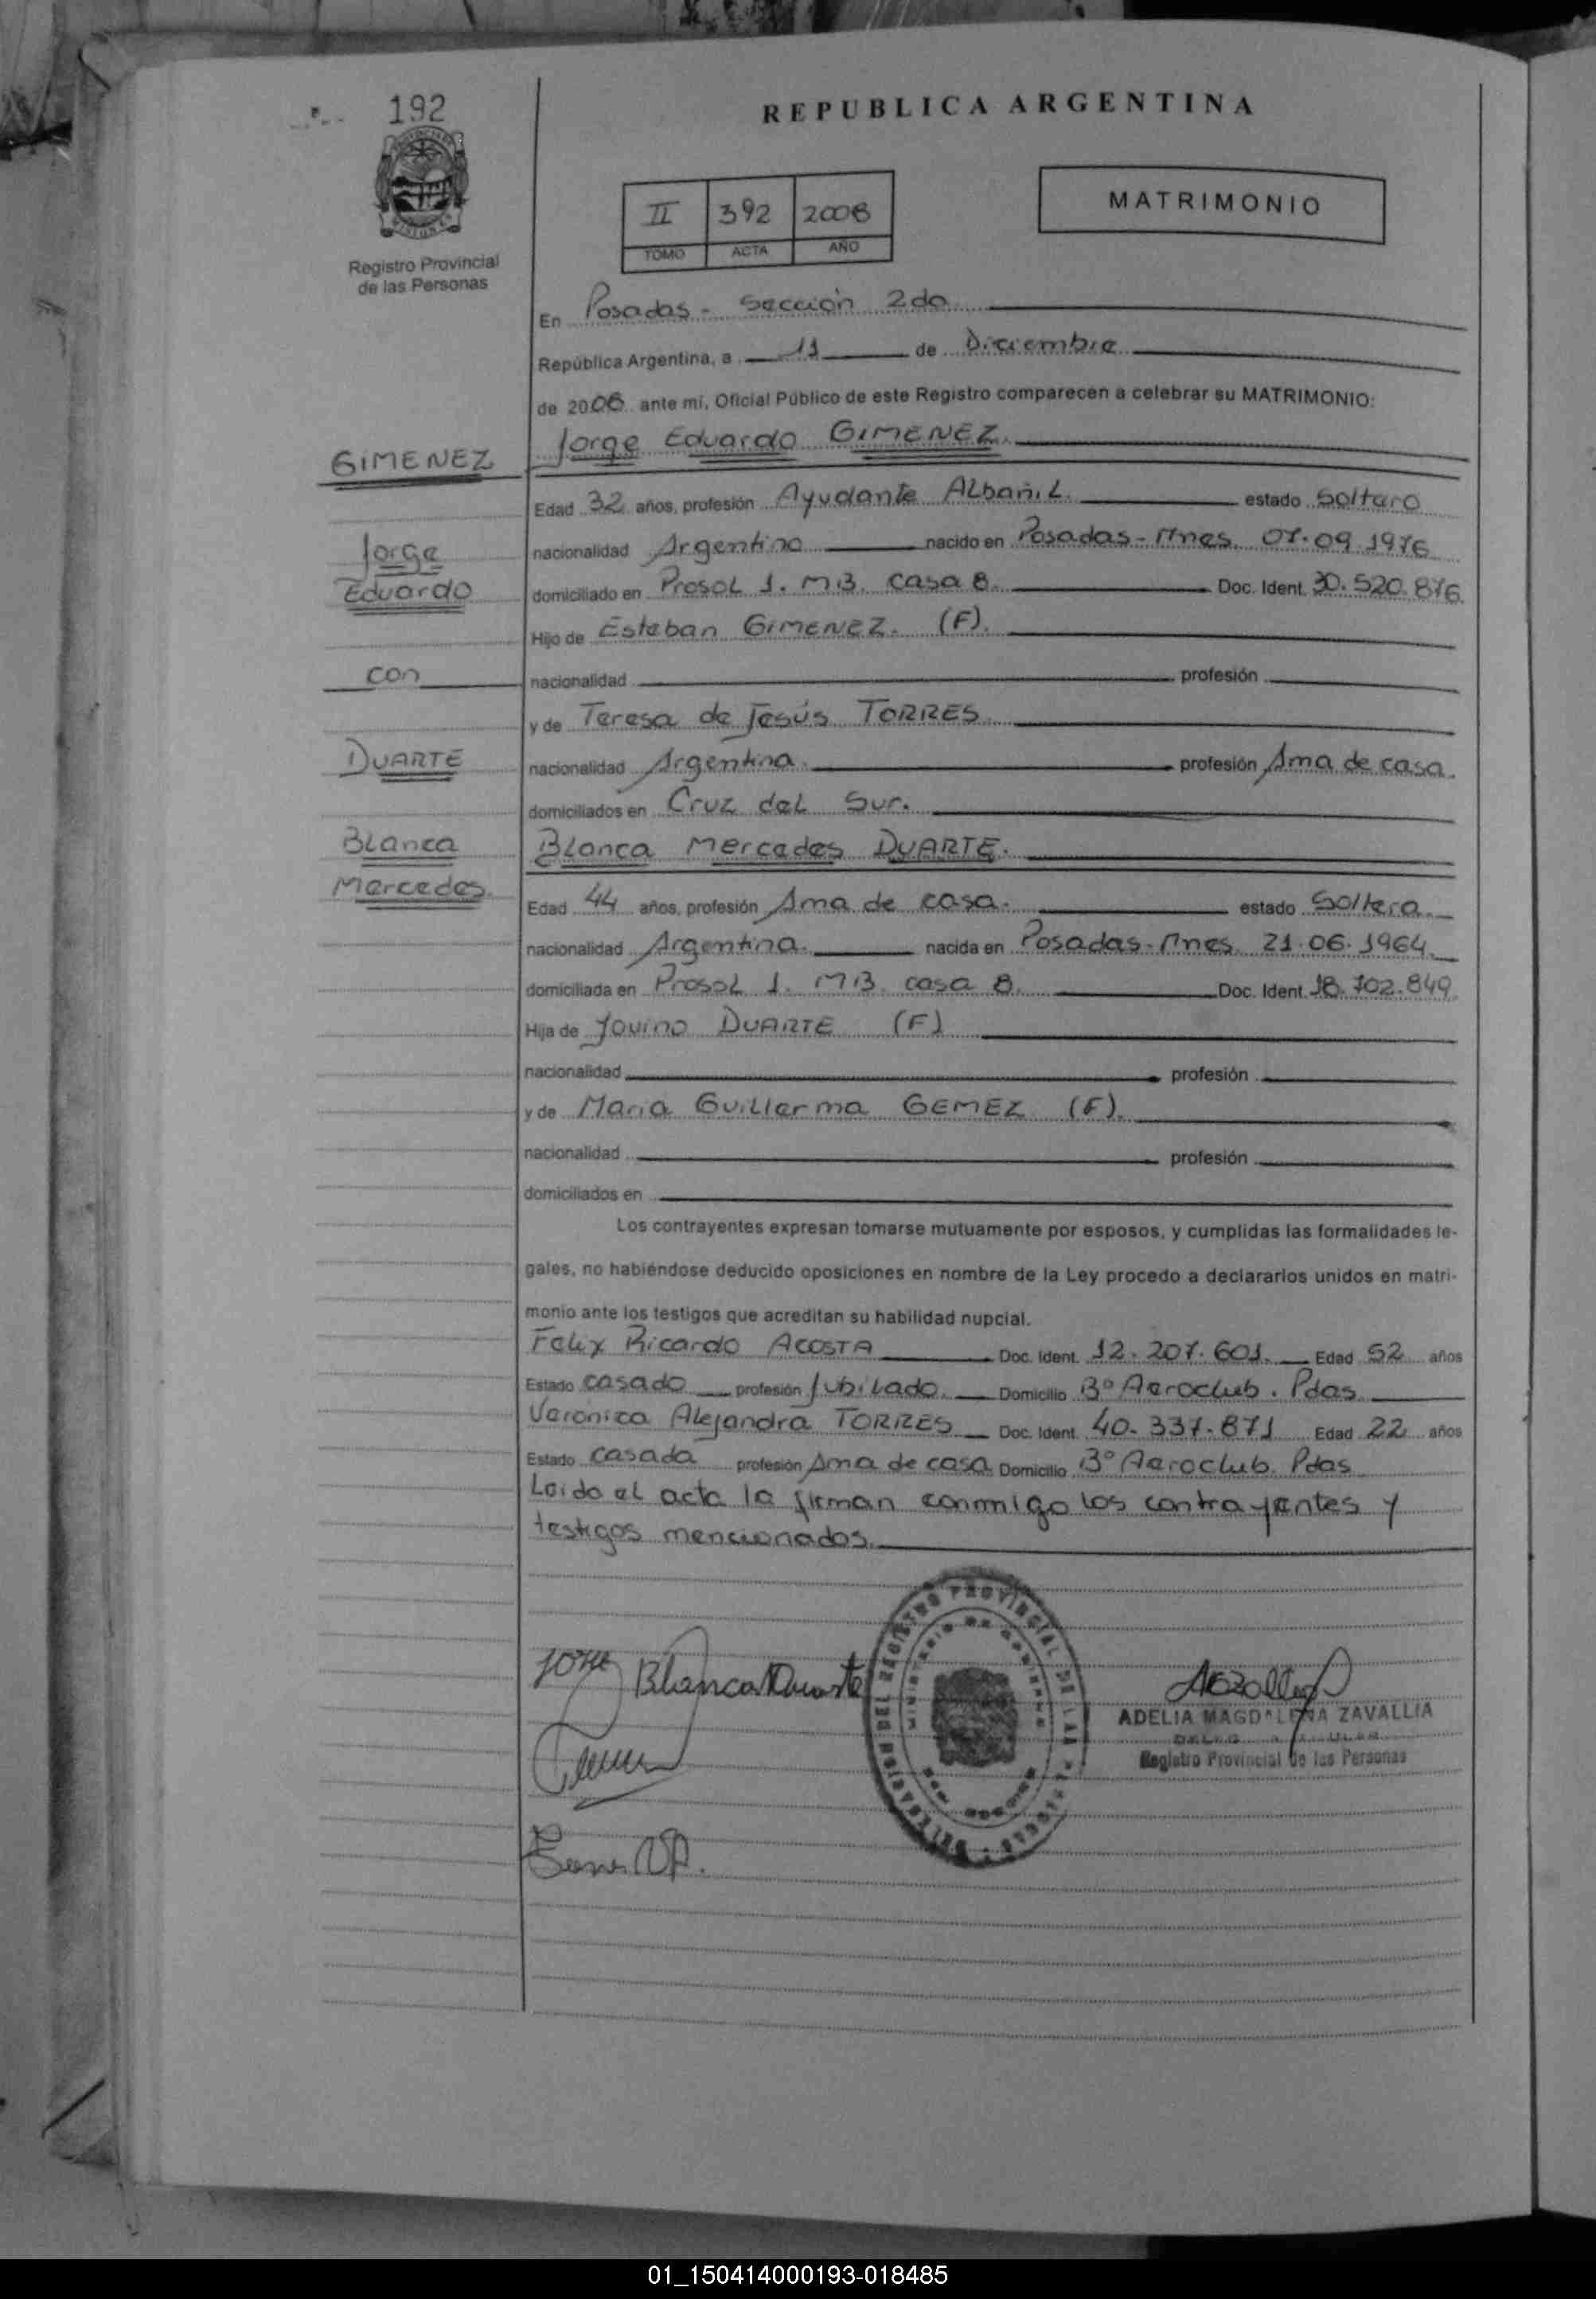 192
REPUBLICA ARGENTINA
MATRIMONIO
II 392 2008
TOMO ACTA AÑO
Registro Provincial
de las Personas
En Posadas - Sección 2da
República Argentina, a 11 de Diciembre
de 2008 ante mi, Oficial Público de este Registro comparecen a celebrar su MATRIMONIO:
GIMENEZ
Jorge Eduardo GIMENEZ.
Edad 32 años, profesión Ayudante Albañil. estado Soltero
Jorge
nacionalidad Argentino nacido en Posadas - Mnes. 07.09.1976
Eduardo
domiciliado en Prosol 1. M13. casa 8. Doc. Ident. 30.520.876
Hijo de Esteban GIMENEZ. (F).
con
nacionalidad profesión
y de Teresa de Jesús TORRES
DUARTE
nacionalidad Argentina. profesión Ama de casa.
domiciliados en Cruz del Sur.
Blanca
Blanca Mercedes DUARTE.
Mercedes
Edad 44 años, profesión Ama de casa. estado Soltera.
nacionalidad Argentina. nacida en Posadas - Mnes. 21.06.1964.
domiciliada en Prosol 1. M13. casa 8. Doc. Ident. 18.702.849
Hija de Jovino DUARTE (F)
nacionalidad profesión
y de Maria Guillerma GEMEZ (F).
nacionalidad profesión
domiciliados en
Los contrayentes expresan tomarse mutuamente por esposos, y cumplidas las formalidades le-
gales, no habiéndose deducido oposiciones en nombre de la Ley procedo a declararlos unidos en matri-
monio ante los testigos que acreditan su habilidad nupcial.
Felix Ricardo ACOSTA Doc. Ident. 12.207.601. Edad 52 años
Estado casado profesión Jubilado. Domicilio Bº Aeroclub. Pdas
Veronica Alejandra TORRES Doc. Ident. 40.337.871 Edad 22 años
Estado casada profesión Ama de casa Domicilio Bº Aeroclub. Pdas
Leido el acta la firman conmigo los contrayentes y
testigos mencionados.
Jorge Blanca Duarte
ADELIA MAGDALENA ZAVALLIA
Registro Provincial de las Personas
01_150414000193-018485